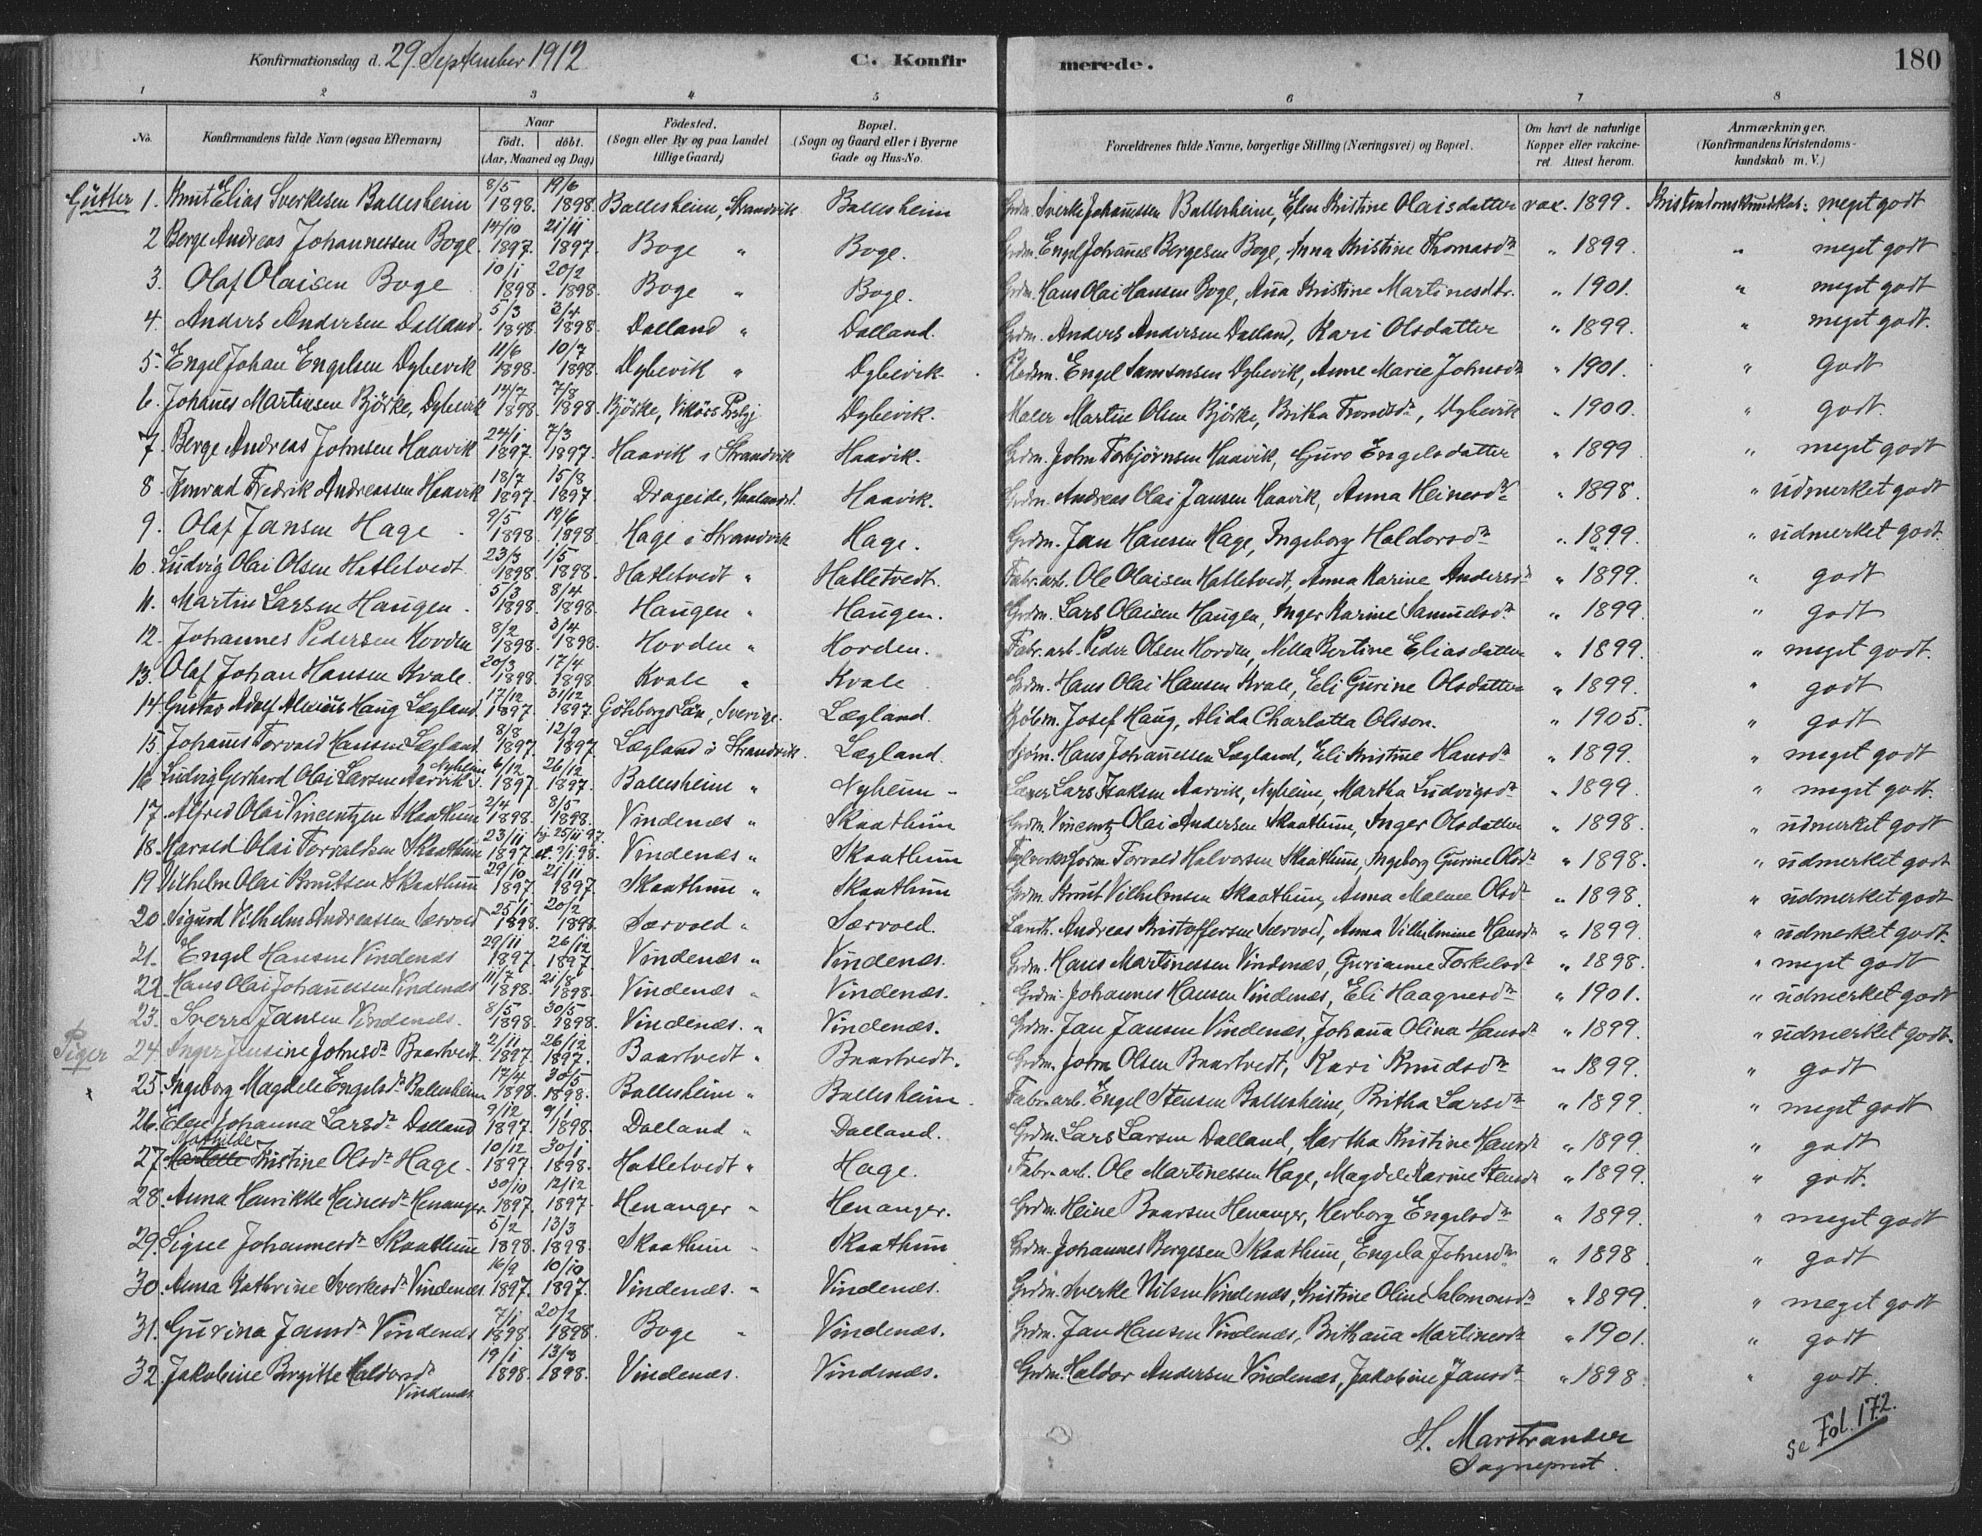 Konfirmationsdag d. 29 September 1912
C. Konfir merede.
180
1 2 3 4 5 6 7 8
No. Konfirmandens fulde Navn (ogsaa Efternavn) Naar født. døbt. (Aar, Maaned og Dag) Fødested. (Sogn eller By og paa Landet tillige Gaard) Bopæl. (Sogn og Gaard eller i Byerne Gade og Hus-No. Forældrenes fulde Navne, borgerlige Stilling (Næringsvei) og Bopæl. Om havt de naturlige Kopper eller vakcineret. Attest herom. Anmærkninger. (Konfirmandens Kristendomskundskab m. V.)
Gutter 1. Knut Elias Sverkesen Ballesheim 8/5 1898. 19/6 1898 Ballesheim, Strandvik Ballesheim Grdm. Sverke Johannessen Ballesheim, Elen Kristine Olaisdatter vac. 1899. Kristendomskundskab: meget godt
2 Berge Andreas Johannessen Boge 14/10 1897. 21/11 1897. Boge " Boge. Grdm. Engel Johannes Bergesen Boge, Anna Kristine Thomasdtr " 1899. " meget godt
3. Olaf Olaisen Boge 10/1 1898. 20/2 1898. Boge " Boge. Grdm. Hans Olai Hansen Boge, Ana Kristine Martinesdtr. " 1901. " meget godt
4. Anders Andersen Dalland 5/3 1898. 3/4 1898. Dalland " Dalland. Grdm. Anders Andersen Dalland, Kari Olsdatter " 1899. " meget godt.
5. Engel Johan Engelsen Dybevik 11/6 1898. 10/7 1898. Dybevik " Dybevik. Engel Samsonsen Dybevik, Anne Marie Johnsdtr " 1901. " Godt
6. Johannes Martinsen Bjørke, Dybevik 14/7 1898. 7/8 1898. Bjørke, Vikørs Prstgj Dybevik. Maler Martin Olsen Bjørke, Britha Tromsdtr, Dybevik " 1900. " godt.
7. Berge Andreas Johnsen Haavik 24/1 1897. 7/3 1897. Haavik i Strandvik Haavik. Grdm. John Torbjørnsen Haavik, Guro Engelsdatter " 1899 " meget godt
8 Konrad Fredrik Andreassen Haavik 18/7 1897. 15/8 1897. Drageide, Haalandsd. Haavik. Grdm. Andreas Olai Jansen Haavik, Anna Heinesdtr " 1898. " udmerket godt
9. Olaf Jansen Hage 9/5 1898. 19/6 1898. Hage i Strandvik Hage. Grdm. Jan Hansen Hage, Ingeborg Haldorsdtr " 1899. " udmerket godt.
10. Ludvig Olai Olsen Hatletvedt 23/3 1898. 1/5 1898. Hatletvedt " Hatletvedt. Fabr. arb. Ole Olaisen Hatletvedt, Anna Karine Andersdtr " 1899. " godt
11. Martin Larsen Haugen 5/3 1898. 8/4 1898. Haugen " Haugen. Grdm. Lars Olaisen Haugen, Inger Karine Samuelsdtr " 1899. " godt
12. Johannes Pedersen Horden 8/2 1898. 3/4 1898. Horden " Horden. Fabr. arb. Peder Olsen Horden, Nella Bertine Eliasdatter " 1899. " meget godt.
13. Olaf Johan Hansen Kvale 20/3 1898. 17/4 1898 Kvale " Kvale Grdm. Hans Olai Hansen Kvale, Eli Gurine Olsdatter " 1899. " godt
14. Gustav Adolf Alexius Haug Lægland 17/12 1897. 31/12 1897. Göteborgs Län, Sverige. Lægland. Kjøbm. Josef Haug, Alida Charlotta Olsson. " 1905. " godt
15. Johannes Torvald Hansen Lægland. 8/8 1897. 12/9 1897. Lægland i Strandvik. Lægland. Hans Johannessen Lægland, Eli Kristine Hansdtr " 1899. " meget godt
16. Ludvig Gerhard Olai Larsen Aarvik, Nyheim 6/12 1897. 26/12 1897. Ballesheim " Nyheim Lærer Lars Isaksen Aarvik, Nyheim, Martha Ludvigsdtr " 1899. " meget godt.
17. Alfred Olai Vincentzen Skaathum 2/4 1898. 8/5 1898. Vindenæs " Skaathum Grdm. Vincentz Olai Andersen Skaathum, Inger Olsdatter " 1898. " udmerket godt
18. Harald Olai Torvaldsen Skaathum 23/11 1897. hj. 25/11 97. st. 9/1 98. Vindenæs " Skaathum Torvald Halvorsen Skaathum, Ingeborg Gurine Olsdtr " 1898. " udmerket godt
19 Vilhelm Olai Knutsen Skaathum 29/10 1897. 21/11 1897. Skaathum " Skaathum Grdm. Knut Vilhelmsen Skaathum, Anna Malene Olsdtr " 1898. " udmerket godt
20. Sigurd Vilhelm Andreassen Særvold 25/1 1898. 20/2 1898. Særvold " Særvold. Landh. Andreas Kristoffersen Særvold, Anna Vilhelmine Hansdtr " 1899. " udmerket godt.
21. Engel Hansen Vindenæs 29/11 1897. 26/12 1897. Vindenæs " Vindenæs. Grdm. Hans Martinessen Vindenæs, Gurianne Torkelsdtr " 1898. " meget godt
22. Hans Olai Johannessen Vindenæs 11/7 1898. 21/8 1898. Vindenæs " Vindenæs. Grdm. Johannes Hansen Vindenæs, Eli Haagnesdtr " 1901. " udmerket godt
23. Sverre Jansen Vindenæs. 8/5 1898. 30/5 1898. Vindenæs. " Vindenæs. Grdm. Jan Jansen Vindenæs, Johanna Olina Hansdtr " 1899. " udmerket godt.
Piger 24. Inger Jensine Johnsdtr Baartvedt. 2/11 1897. 26/12 1897. Baartvedt " Baartvedt. Grdm. John Olsen Baartvedt, Kari Knudsdtr " 1899. " godt
25. Ingeborg Magdele Engelsdtr Ballesheim 17/4 1898. 30/5 1898. Ballesheim " Ballesheim. Fabr. arb. Engel Stensen Ballesheim, Britha Larsdtr " 1899. " meget godt
26. Elen Johanna Larsdtr Dalland 9/12 1897. 9/1 1898. Dalland " Dalland. Grdm. Lars Larsen Dalland, Martha Kristine Hansdtr " 1899. " godt
27. Mathilde Kristine Olsdtr Hage 10/12 1897. 30/1 1898. Hatletvedt " Hage. Fabr. arb. Ole Martinessen Hage, Magdele Karine Stensdtr " 1899. " godt.
28. Anna Henrikke Heinesdtr Henanger 30/10 1897. 12/12 1897. Henanger " Henanger. Grdm. Heine Baarsen Henanger, Herborg Engelsdtr " 1899. " meget godt
29. Signe Johannesdtr Skaathum 5/2 1898. 13/3 1898. Skaathum " Skaathum Grdm. Johannes Borgesen Skaathum, Engela Johnsdtr " 1898 " godt
30. Anna Kathrine Sverkesdtr Vindenæs. 16/9 1897. 10/10 1897. Vindenæs. " Vindenæs. Grdm. Sverke Nilsen Vindenæs, Kristine Oline Salomonsdtr " 1899. " meget godt
31. Gurina Jansdtr Vindenæs 7/1 1898. 20/2 1898. Boge " Vindenæs. Grdm. Jan Hansen Vindenæs, Brithana Martinesdtr " 1901. " godt
32. Jakobine Birgitte Haldorsdtr Vindenæs 19/1 1898. 13/3 1898. Vindenæs. Vindenæs. Grdm. Haldor Andersen Vindenæs, Jakobine Jansdtr " 1898. " godt.
H. Marstrander
Sogneprest.
se Fol. 172.